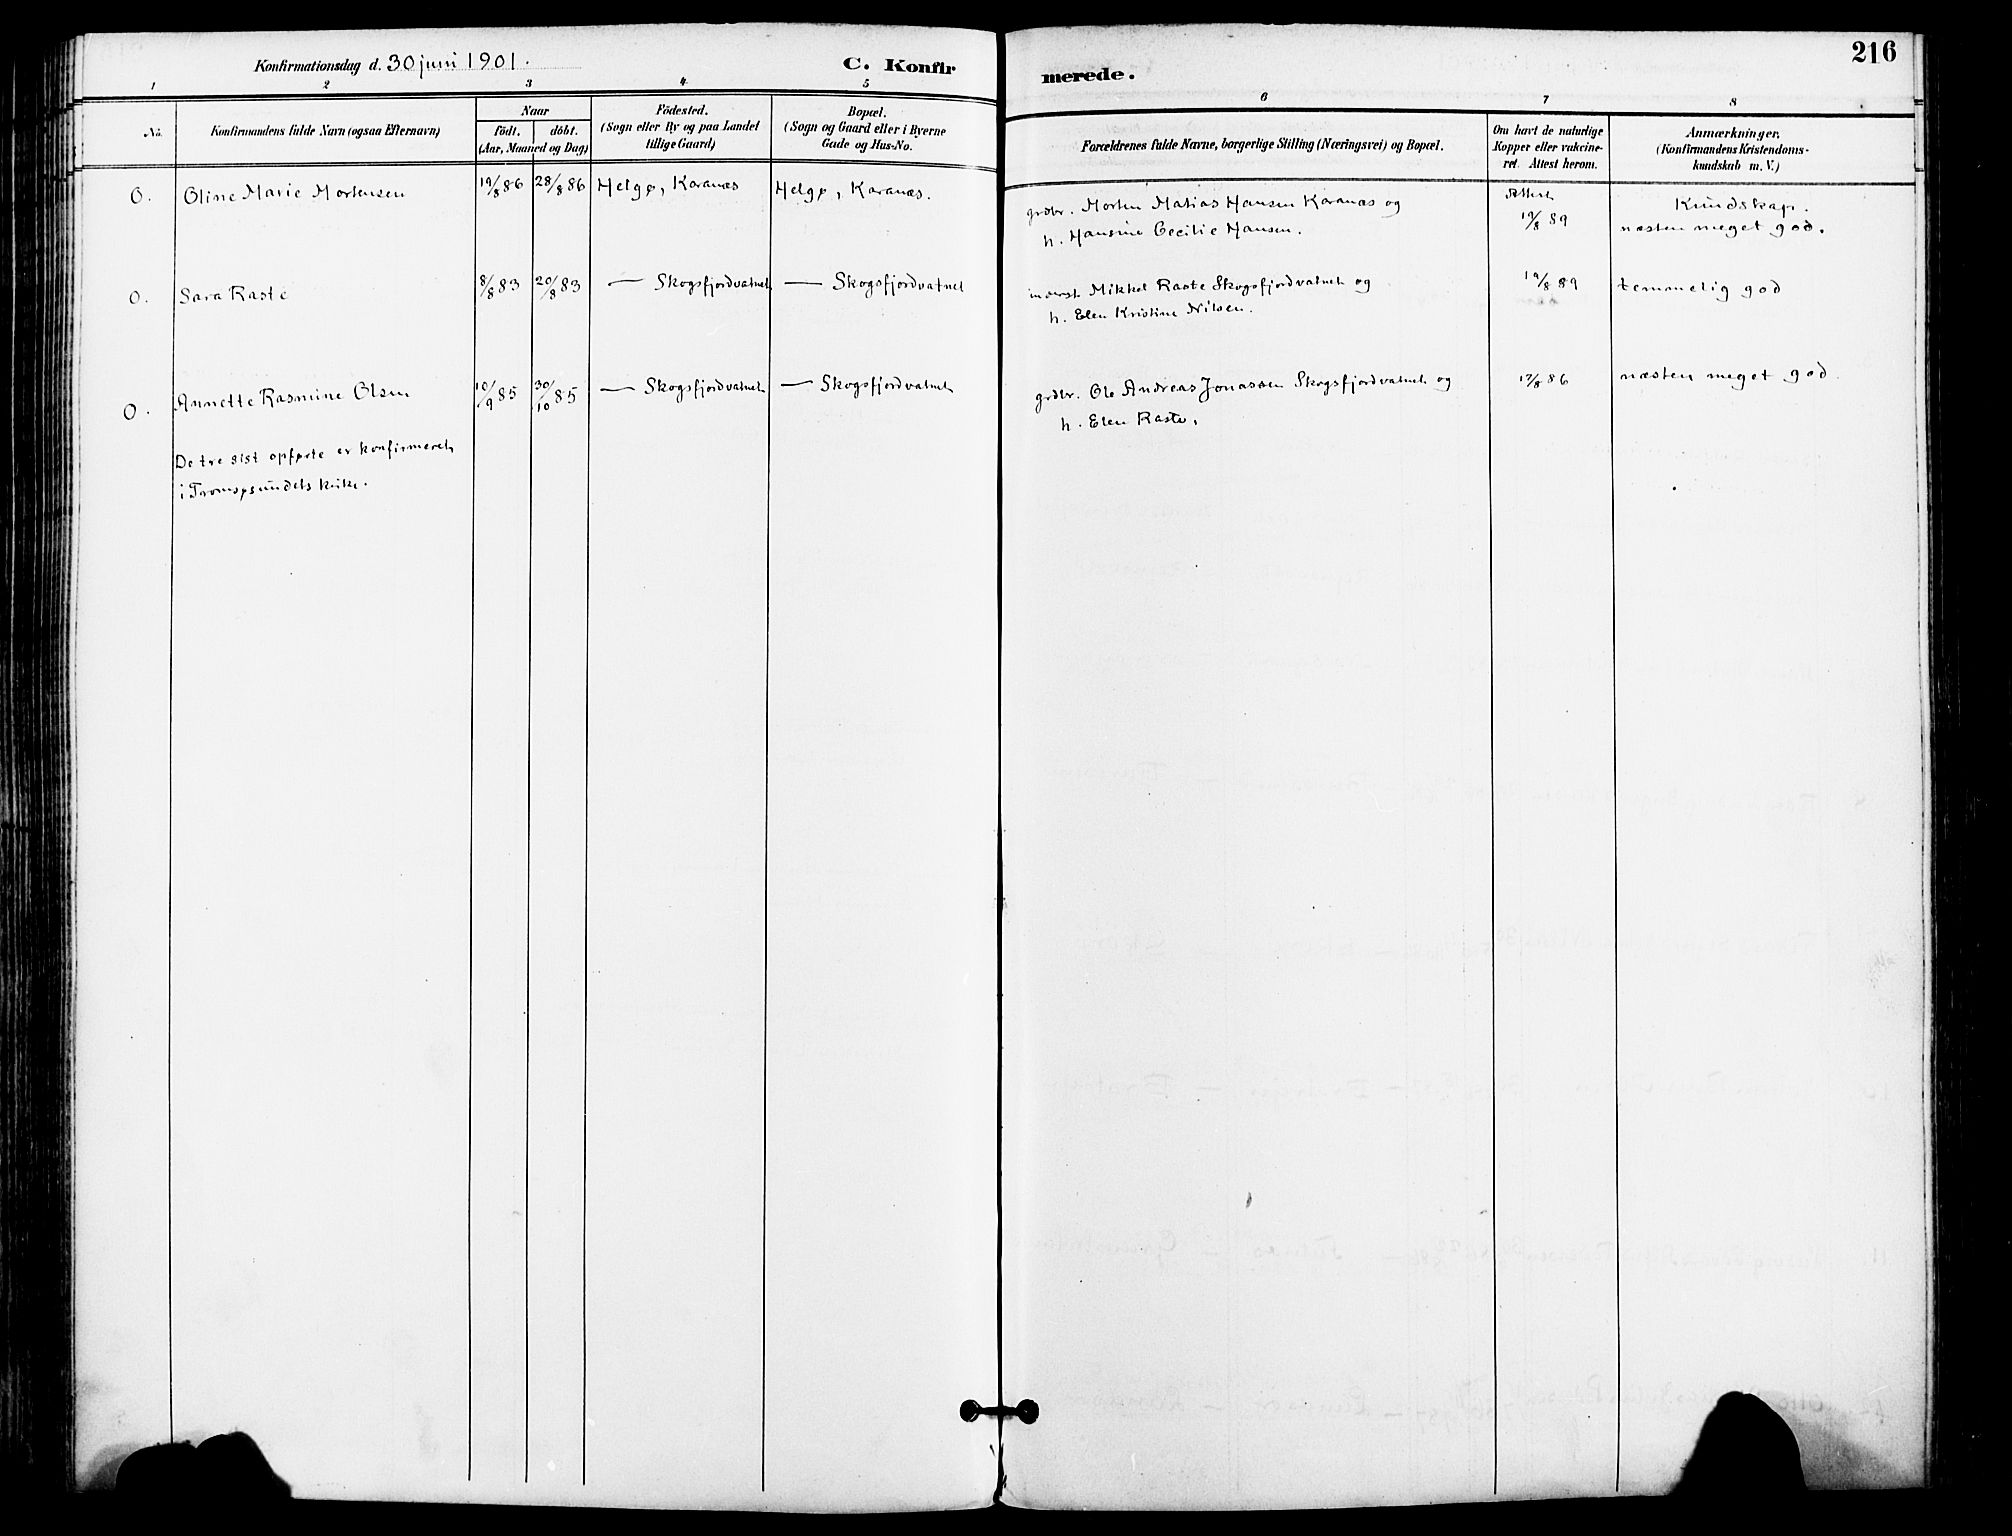 216
Konfirmationsdag d. 30 juni 1901.
C. Konfirmerede.
1 2 3 4 5 6 7 8
No.
Konfirmandens fulde Navn (ogsaa Efternavn)
Naar
födt. döbt.
(Aar, Maaned og Dag)
Födested.
(Sogn eller By og paa Landet
tillige Gaard)
Bopæl.
(Sogn og Gaard eller i Byerne
Gade og Hus-No.
Forældrenes fulde Navne, borgerlige Stilling (Næringsvei) og Bopæl.
Om havt de naturlige
Kopper eller vakcine-
ret. Attest herom.
Anmærkninger.
(Konfirmandens Kristendoms-
kundskab m. V.)
O. Oline Marie Mortensen 19/8 86 28/8 86 Helgø, Karanæs Helgø, Karanæs.
grdbr. Morten Matias Hansen Karanæs og
h. Hansine Cecilie Hansen.
Attest
19/8 89
Kundskap.
næsten meget god.
O. Sara Raste 8/8 83 20/8 83 — Skogsfjordvatnet — Skogsfjordvatnet
inderst Mikkel Raste Skogsfjordvatnet og
h. Elen Kristine Nilsen.
19/8 89 temmelig god
O. Annette Rasmine Olsen 10/9 85 30/10 85 — Skogsfjordvatnet — Skogsfjordvatnet
grdbr. Ole Andreas Jonassen Skogsfjordvatnet og
h. Elen Raste.
17/8 86 næsten meget god.
De tre sist opførte er konfirmeret
i Tromsøsundets kirke.